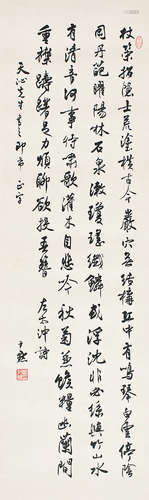 杖策招隱士荒塗橫古今巖穴無結構丘中有鳴琴白雲停陰
岡丹葩曜陽林石泉漱瓊瑤纖鱗或浮沈非必絲與竹山水
有清音何事待嘯歌灌木自悲吟秋菊兼餱糧幽蘭間
重襟躊躇足力煩聊欲投吾簪 左太沖詩
先生 即希 正字 尹默